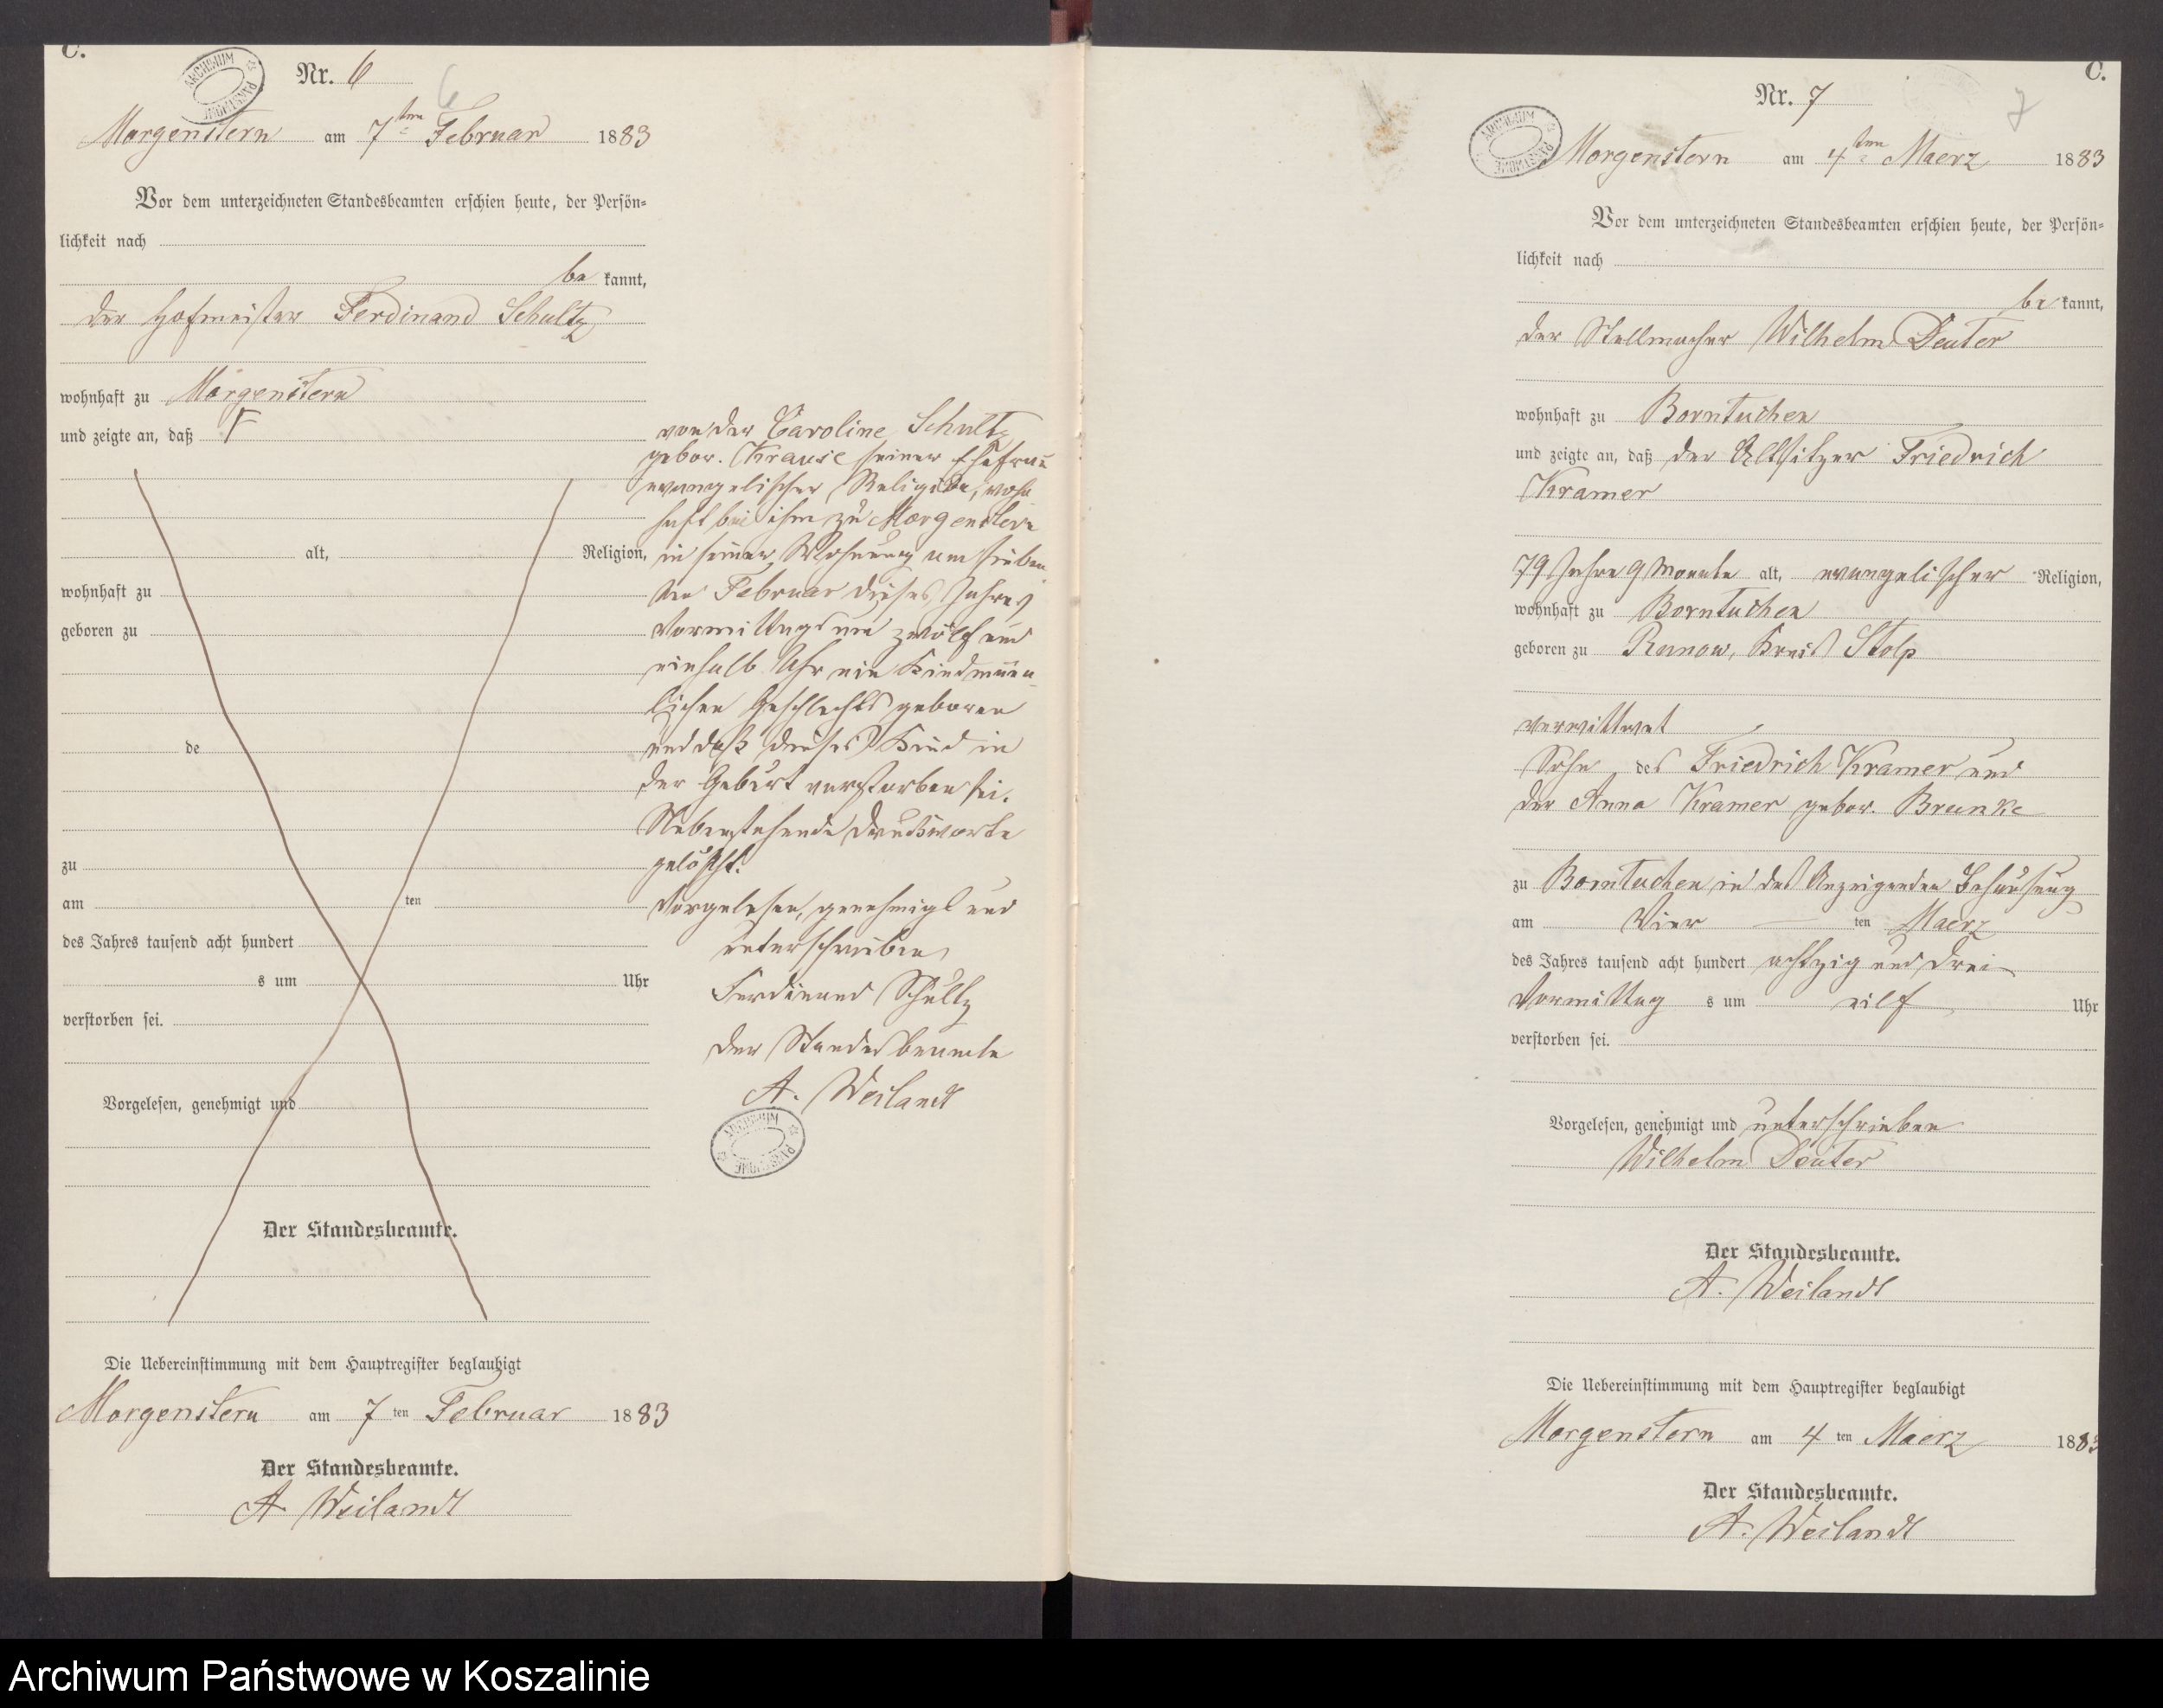 C.
Nr. 6
6
Morgenstern am 7ten Februar 1883
Vor dem unterzeichneten Standesbeamten erschien heute, der Persön-
lichkeit nach
be kannt,
der Hofmeister Ferdinand Schultz
wohnhaft zu Morgenstern
und zeigte an, daß
alt, Religion,
wohnhaft zu
geboren zu
de
zu
am ten
des Jahres tausend acht hundert
s um Uhr
verstorben sei.
Vorgelesen, genehmigt und
Der Standesbeamte.
von der Caroline Schultz
gebor. Krause seiner Ehefrau
evangelischer Religion, wohn
haft bei ihm zu Morgenstern
in seiner Wohnung am sieben
ten Februar dieses Jahres
Vormittags um zwölf und
einhalb Uhr ein Kind männ-
lichen Geschlechts geboren
und daß dieses Kind in
der Geburt verstorben sei.
Nebenstehende Druckworte
gelöscht.
Vorgelesen, genehmigt und
unterschrieben
Ferdinand Schultz
Der Standesbeamte
A. Weilandt
ARCHIWUM PAŃSTWOWE
Die Uebereinstimmung mit dem Hauptregister beglaubigt
Morgenstern am 7 ten Februar 1883
Der Standesbeamte.
A. Weilandt
C.
Nr. 7
7
ARCHIWUM PAŃSTWOWE
Morgenstern am 4ten Maerz 1883
Vor dem unterzeichneten Standesbeamten erschien heute, der Persön-
lichkeit nach
be kannt,
der Stellmacher Wilhelm Deuter
wohnhaft zu Borntuchen
und zeigte an, daß der Altsitzer Friedrich
Kramer
79 Jahre 9 Monate alt, evangelischer Religion,
wohnhaft zu Borntuchen
geboren zu Runow, Kreis Stolp
verwittwet
Sohn des Friedrich Kramer und
der Anna Kramer gebor. Brunke
zu Borntuchen in des Anzeigenden Behausung
am Vier ten Maerz
des Jahres tausend acht hundert achtzig und drei
Vormittag s um eilf Uhr
verstorben sei.
Vorgelesen, genehmigt und unterschrieben
Wilhelm Deuter
Der Standesbeamte.
A. Weilandt
Die Uebereinstimmung mit dem Hauptregister beglaubigt
Morgenstern am 4 ten Maerz 1883
Der Standesbeamte.
A. Weilandt
Archiwum Państwowe w Koszalinie